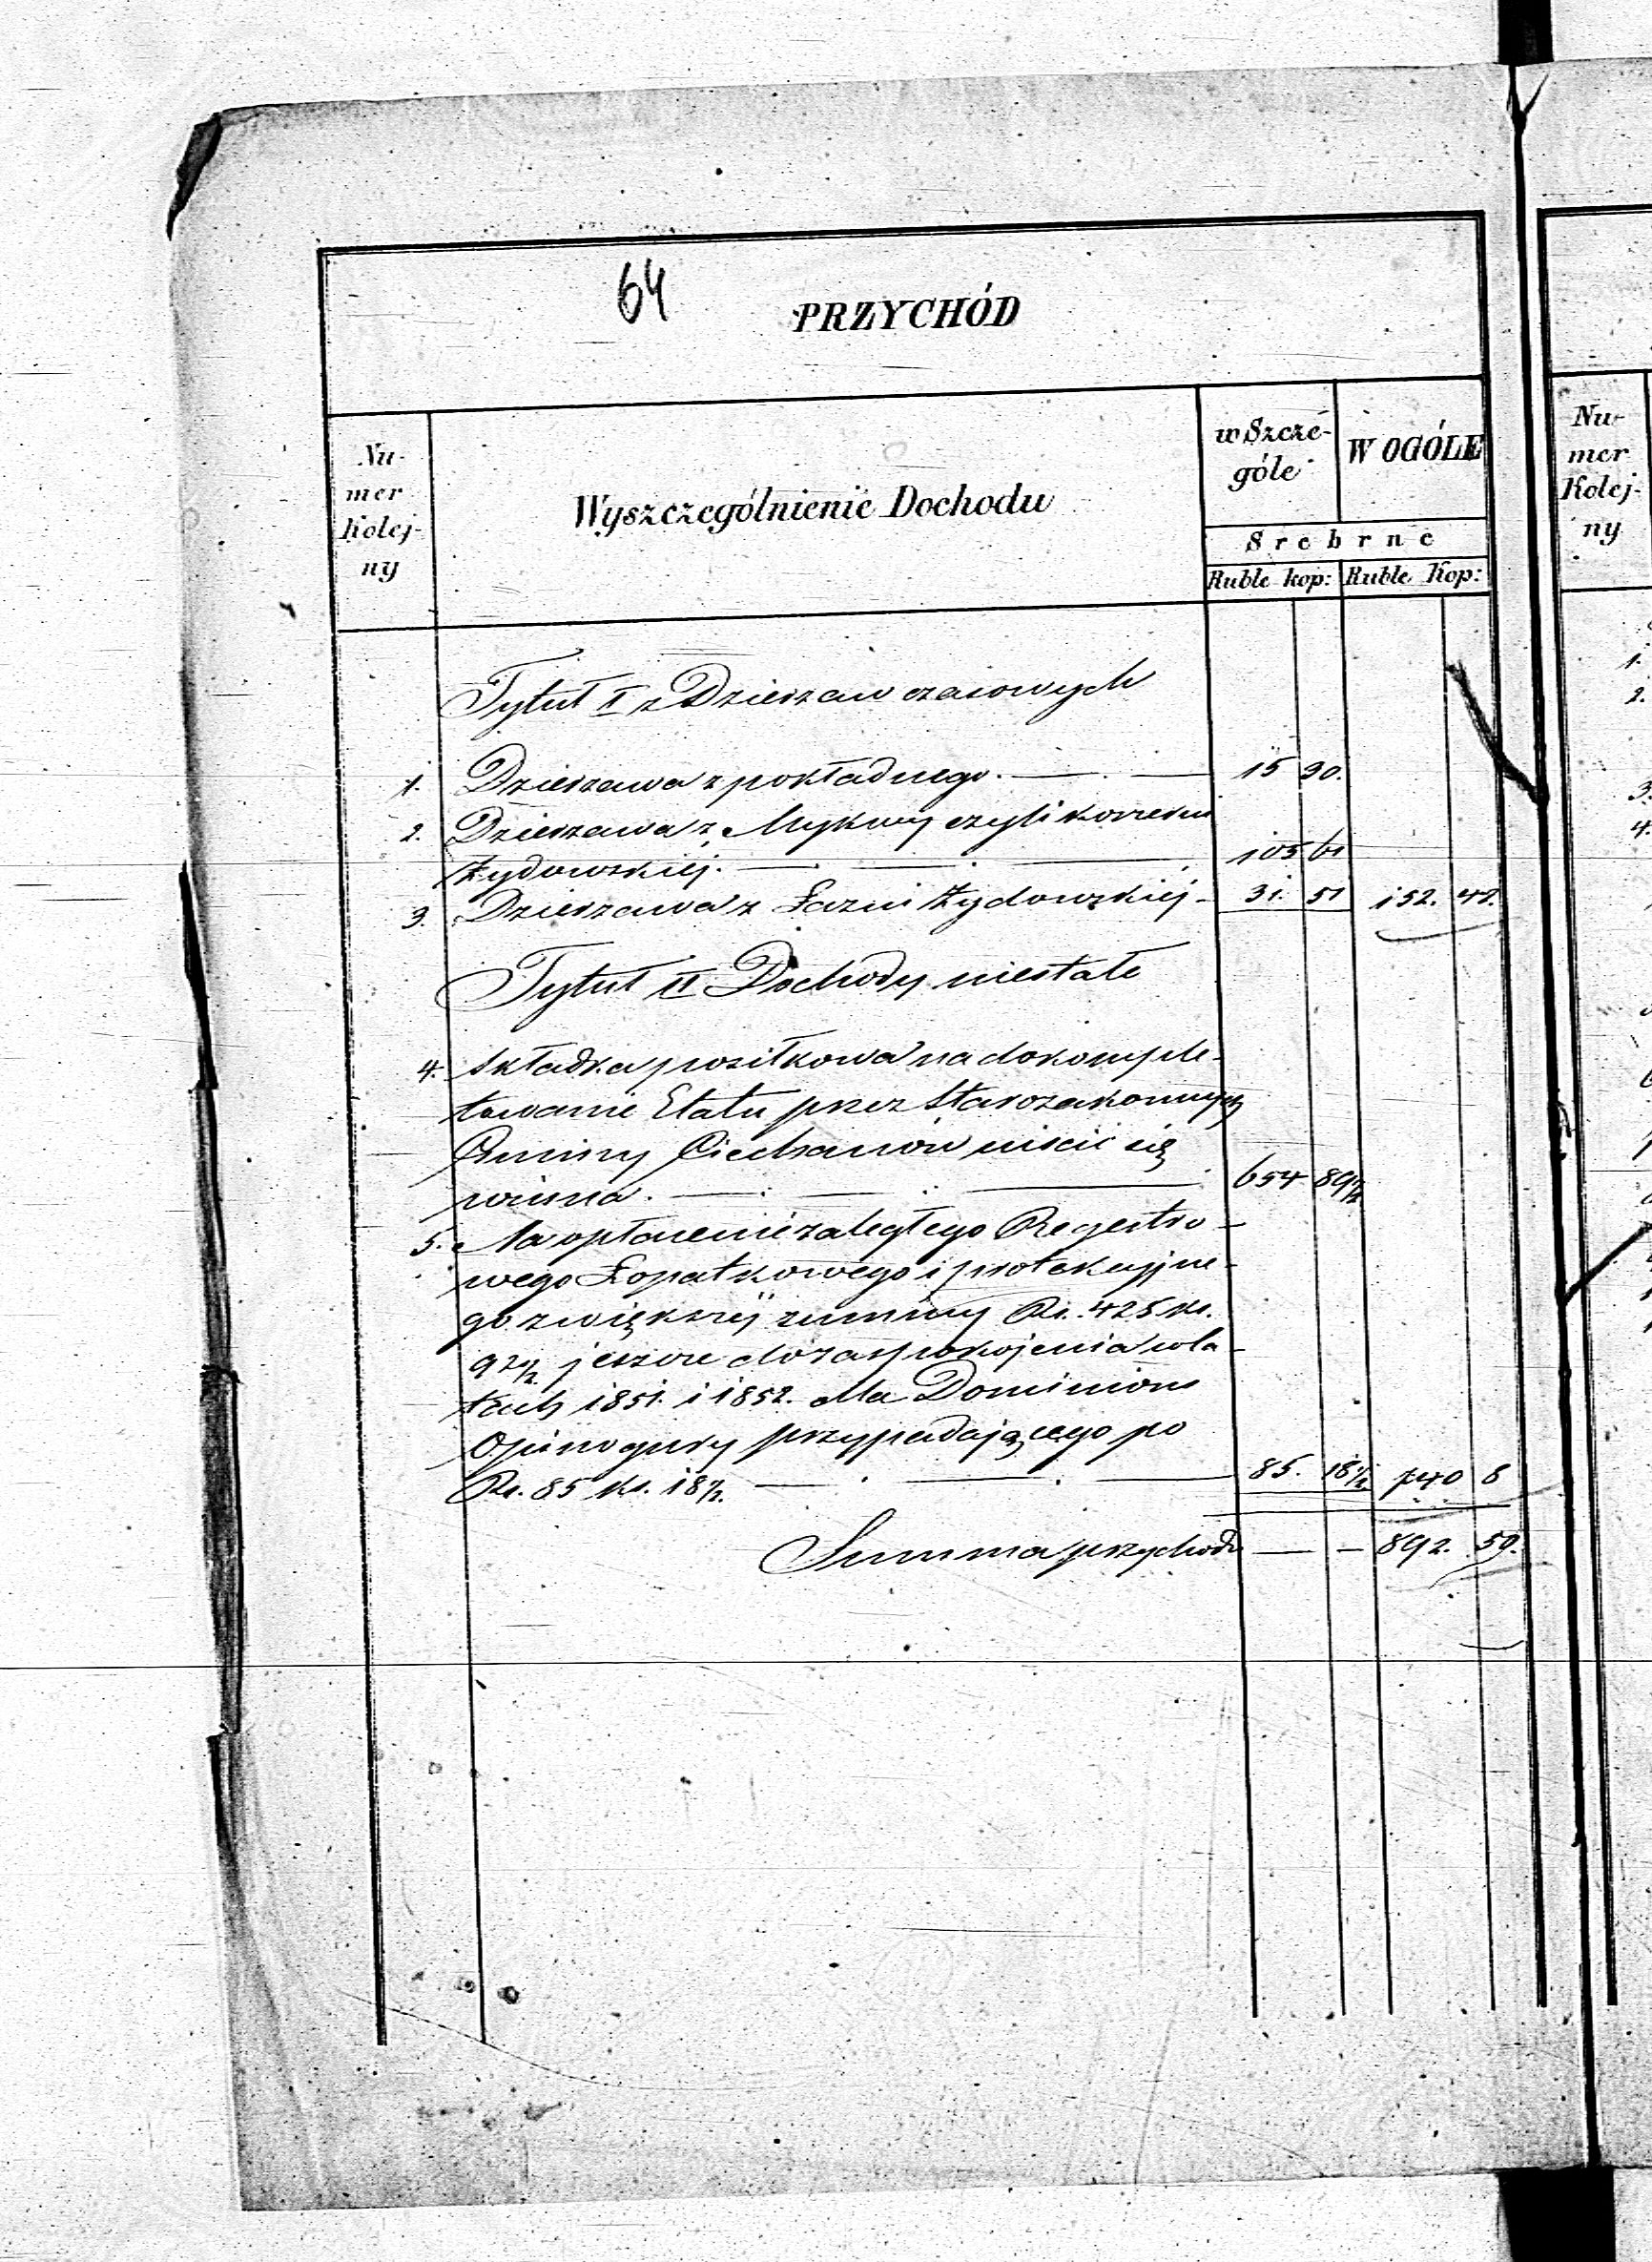 64
PRZYCHÓD
Nu-
mer
Kolej-
ny
Wyszczególnienie Dochodu
w Szcze-
góle
W OGÓLE
Srebrne
Ruble kop: Ruble Kop:
Tytuł I z Dzierzaw czasowych
1. Dzierzawa z pokładnego. 15 30.
2. Dzierzawa z Mykwy czyli
żydowskiej. 105 61
3. Dzierzawa z Łazni żydowskiej 31. 51 152. 42.
Tytuł II Dochody niestałe
4. Składka posiłkowa na dokomple-
towanie Etatu przez Starozakonnych
Gminy Ciechanów uiścić się
winna. 654 89½
5. Na opłacenie zaległego Regestro-
wego Łopatkowego i protekcyjne-
go z większej summy Rs. 425 ks.
92½ jeszcze do zaspokojenia w la-
tach 1851. i 1852. dla Dominium
Opinogury przypadającego po
Rs. 85 ks. 18½. 85. 18½ 740 8
Summa przychodu — — 892. 50.
Nu-
mer
Kolej-
ny
1.
2.
3.
4.